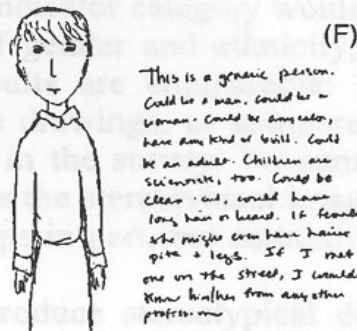 (F)
This is a generic person.
Could be a man. Could be a
woman. Could be any color,
have any kind of build. Could
be an adult. Children are
scientists too. Could be
clean
long hair a beard. If
she might have hairie
pits & legs. If I met
one on the street, I would
know him/her from any other
person.